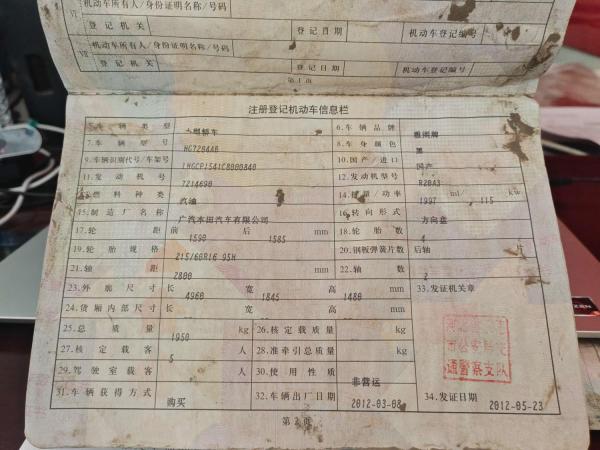 机动车所有人/身份证明名称/号码
登记机关 登记日期 机动车登记编号
机动车所有人/身份证明名称/号码
登记机关 登记日期 机动车登记编号
第1页
注册登记机动车信息栏
5.车辆类型 轿车 6.车辆品牌 雅阁牌
7.车辆型号 HG7204AB 8.车身颜色 黑
9.车辆识别代号/车架号 10.国产/进口 国产
11.发动机号 7214690 12.发动机型号 R20A3
13.燃料种类 汽油 14.排量/功率 1997 ml/ 115 kw
15.制造厂名称 广汽本田汽车有限公司 16.转向形式 方向盘
17.轮距 前 1590 后 1585 mm 18.轮胎数 4
19.轮胎规格 215/60R16 95H 20.钢板弹簧片数 后轴 片
21.轴距 2800 mm 22.轴数 2
23.外廓尺寸 长 4960 宽 1845 高 1480 mm 33.发证机关章
24.货厢内部尺寸 长 宽 高 mm
25.总质量 1950 kg 26.核定载质量 kg
27.核定载客 5 人 28.准牵引总质量 kg
29.驾驶室载客 人 30.使用性质 非营运
通警察支队
31.车辆获得方式 购买 32.车辆出厂日期 2012-03-08 34.发证日期 2012-05-23
第2页